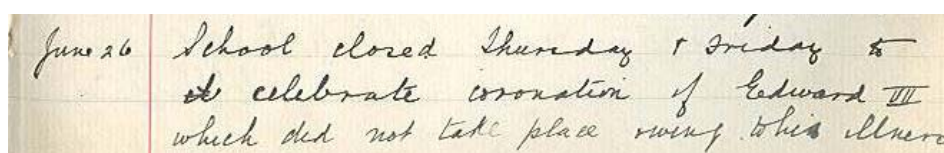 June 26 School closed Thursday & Friday to
celebrate coronation of Edward VII
which did not take place owing to his illness